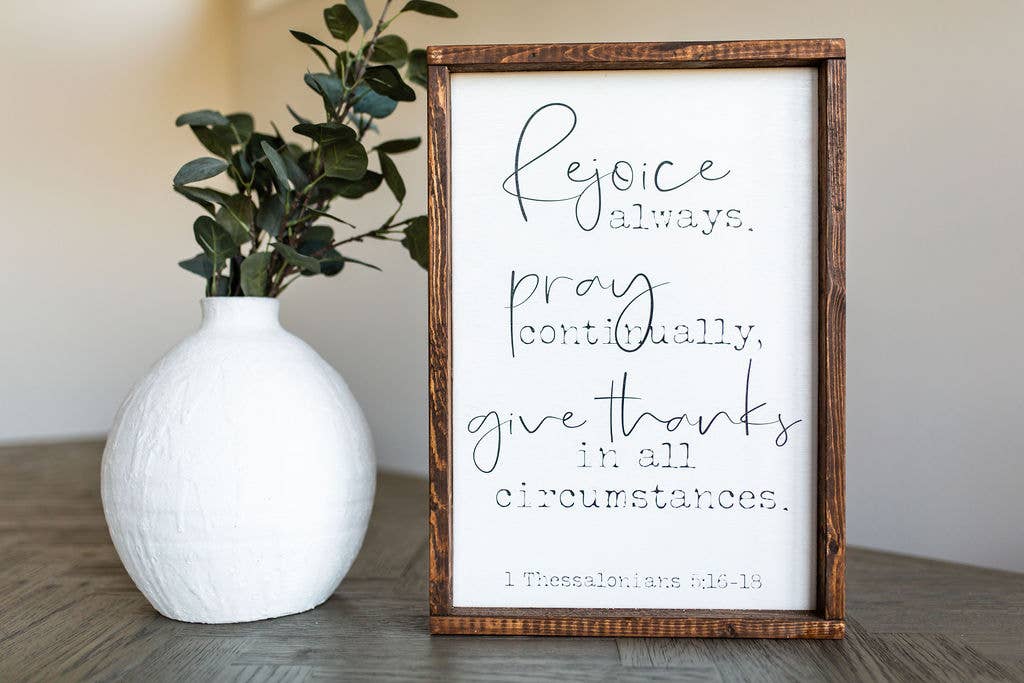 Rejoice
always.
pray
continually,
give thanks
in all
circumstances.
1 Thessalonians 5:16-18